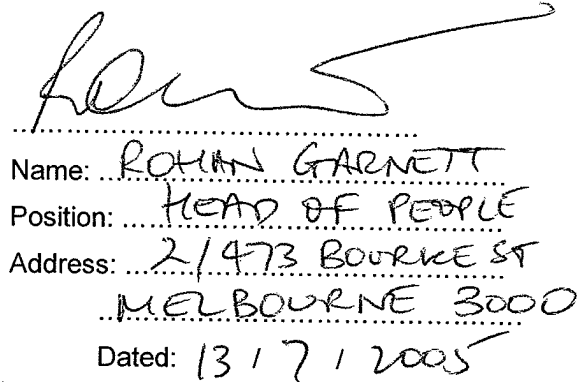 Name: ROHAN GARNETT
Position: HEAD OF PEOPLE
Address: 2/473 BOURKE ST
MELBOURNE 3000
Dated: 13/7/2005